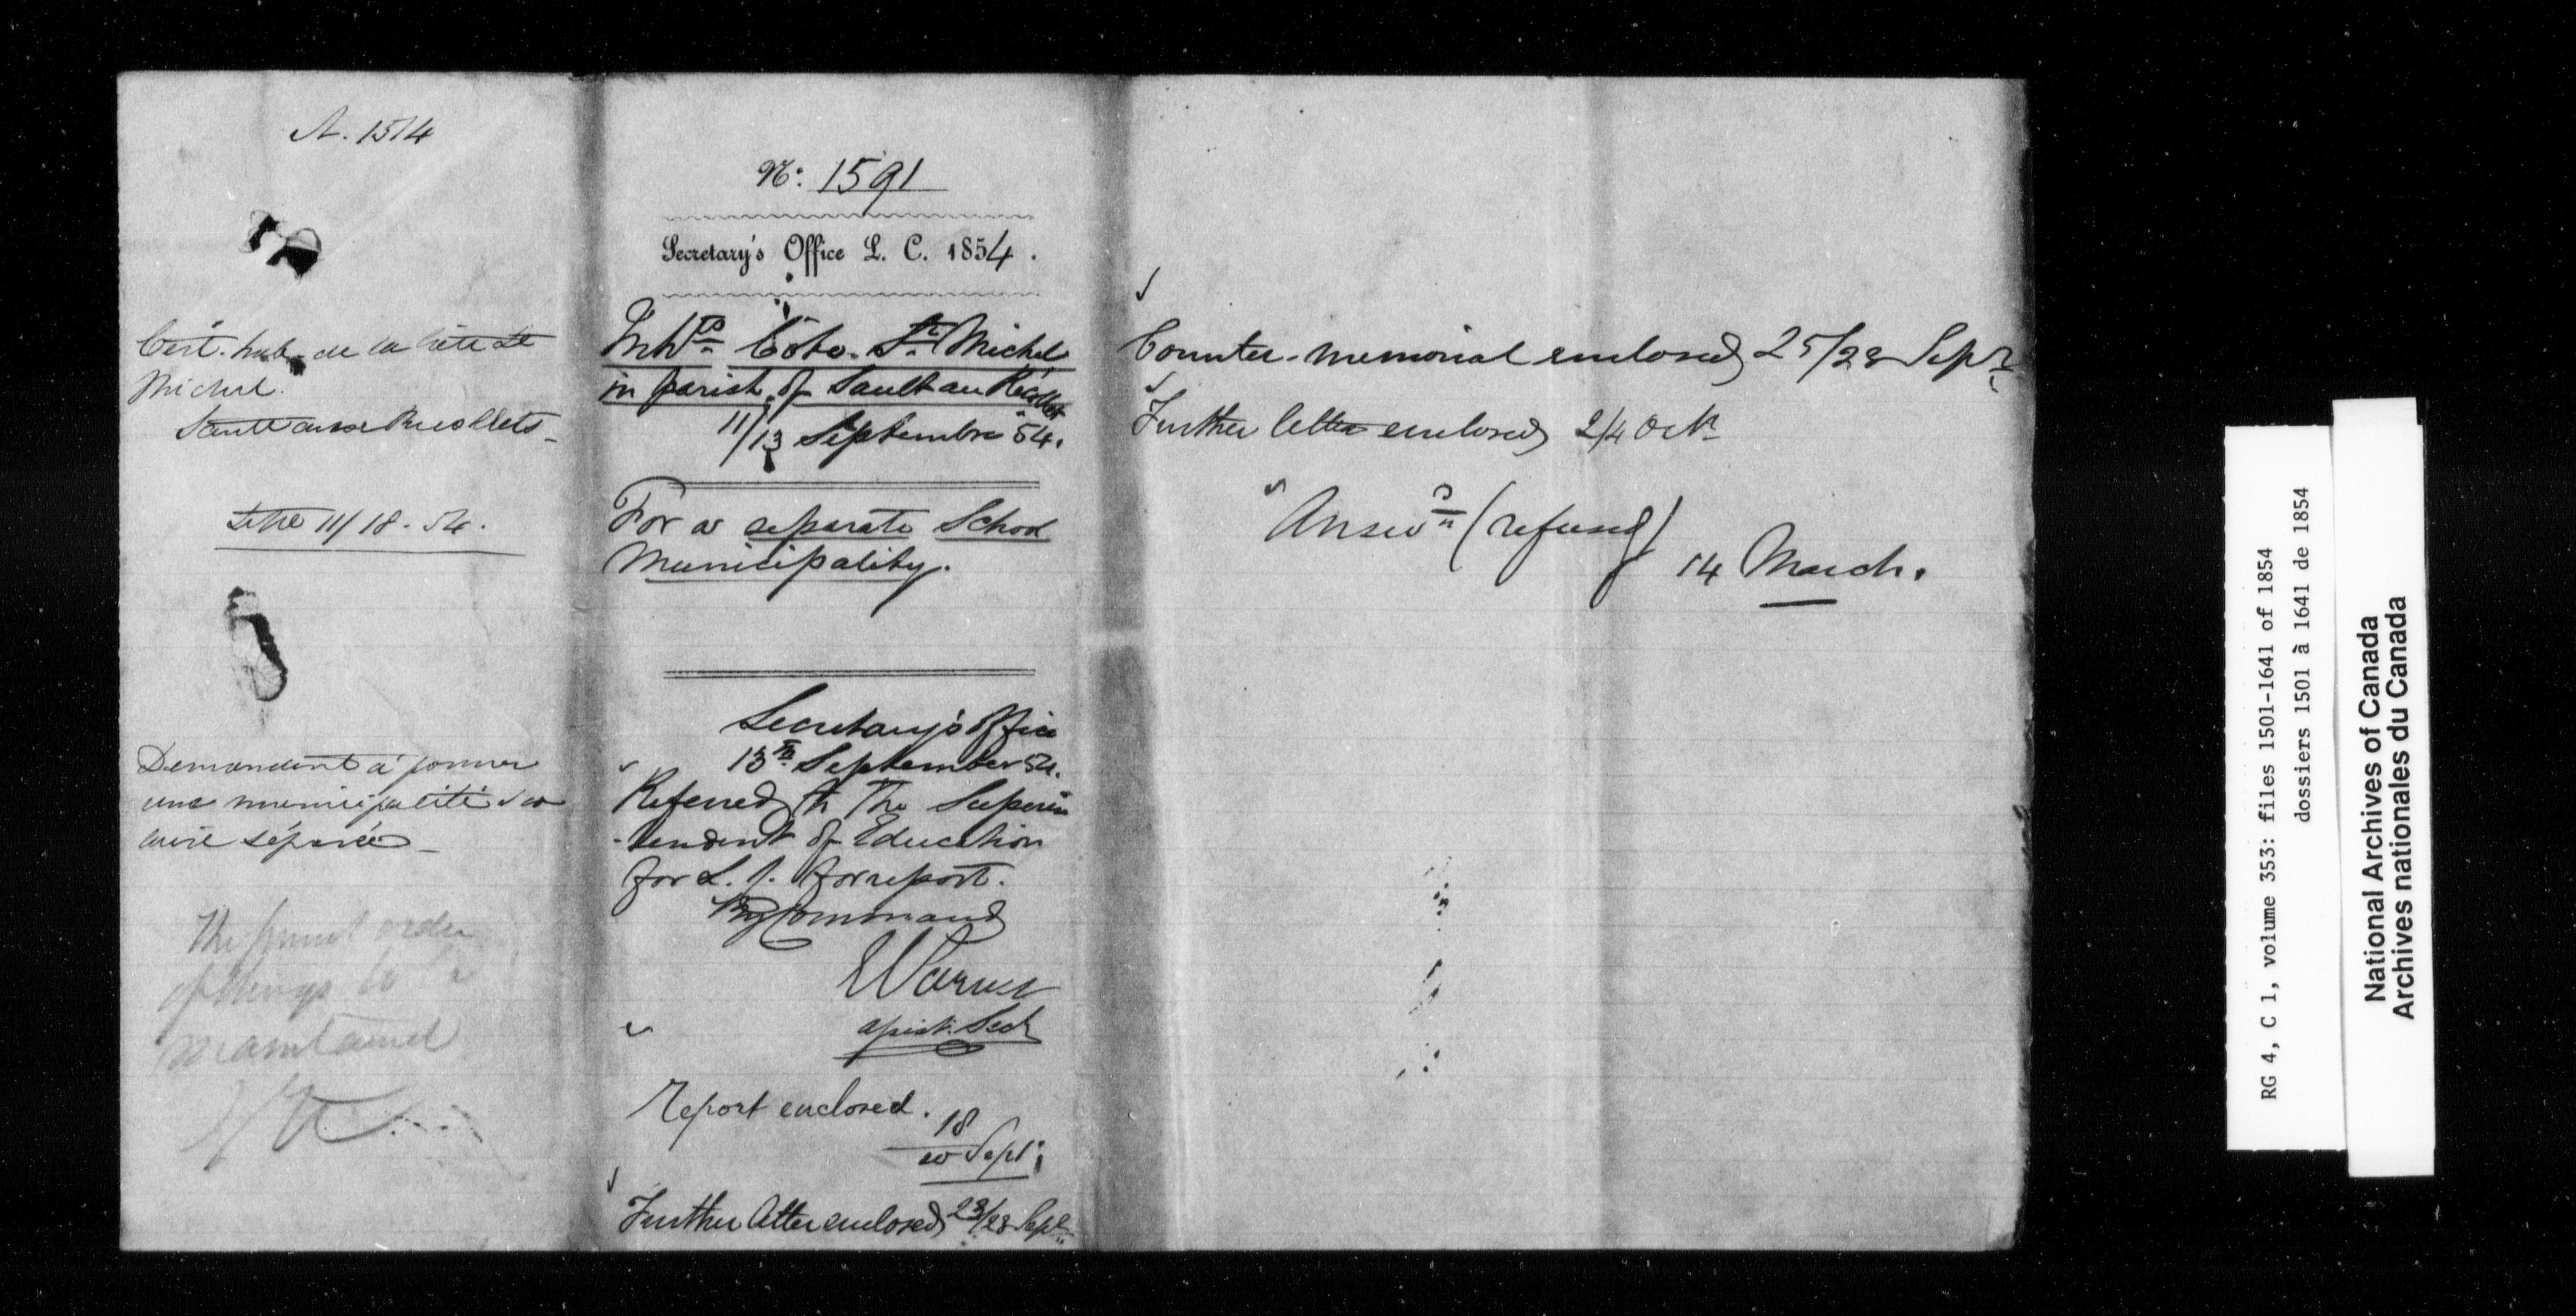 A. 1514
Cert. hab. de la Côte St
Michel.
Sault aux Recollets
Sept 11/18. 54.
Demandent à former
une municipalité sco
laire séparée
The present order
of things to be
maintained
No. 1591
Secretary's Office L. C. 1854.
Inhts Côte St Michel
in parish of Sault au Récollet
11/13 Septembre 54.
For a separate School
Municipality.
Secretary's Office
13th September 54.
Referred to The Superin
-tendent of Education
for L. C. for report.
By Command
assist. Secy
Report enclosed.
18
20 Sept:
Further letter enclosed 23/28 Sept
Counter-memorial enclosed 25/28 Sept
Further letter enclosed 2/4 Oct
Answd (refused)
14 March.
RG 4, C 1, volume 353: files 1501-1641 of 1854
dossiers 1501 à 1641 de 1854
National Archives of Canada
Archives nationales du Canada